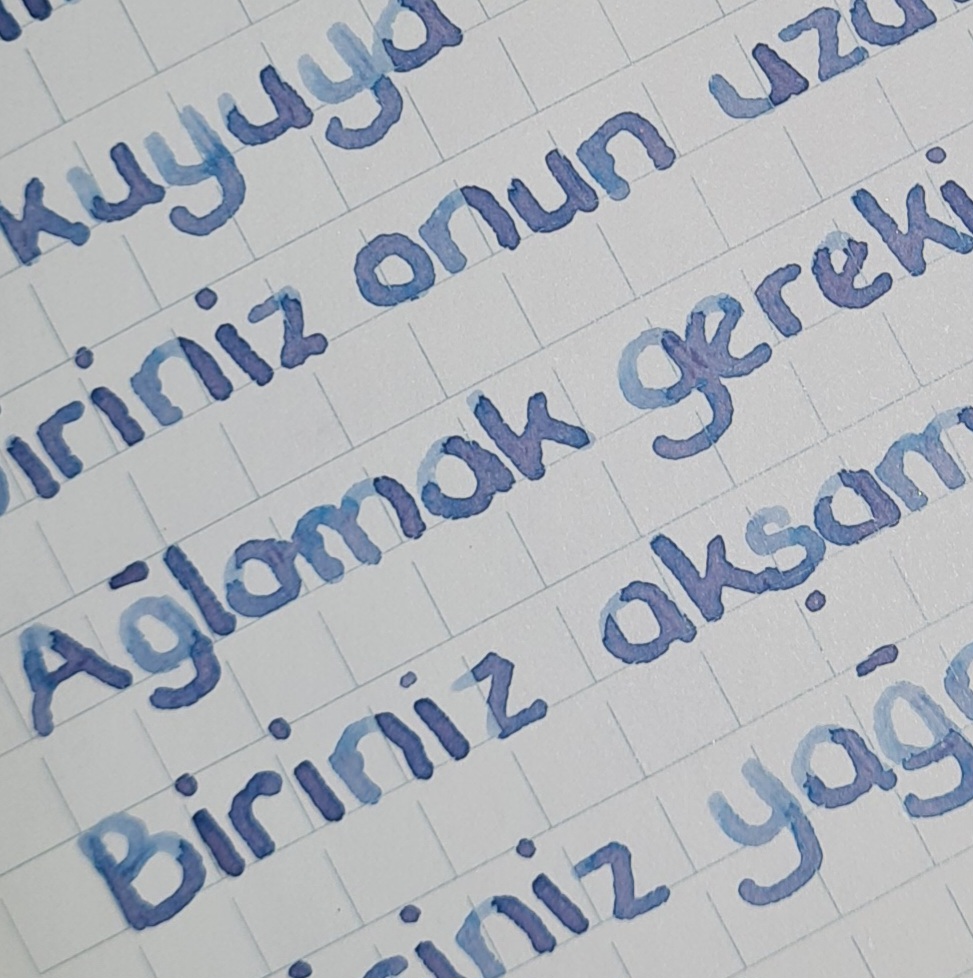 kuyuya
biriniz onun uza
Ağlamak gereki
Biriniz akşam
iriniz yağ